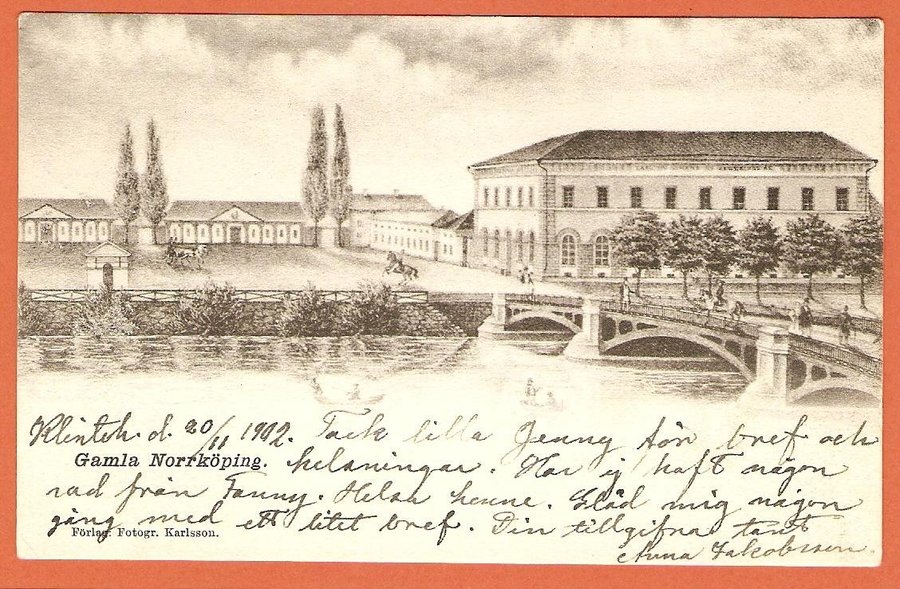 Klinteh. d. 20/11 1902. Tack lilla Jenny för bref och
Gamla Norrköping.
helsningar. Har ej haft någon
rad från Fanny. Helsa henne. Gläd mig någon
gång med ett litet bref. Din tillgifna tant
Förlag: Fotogr. Karlsson.
Anna Jakobsson.